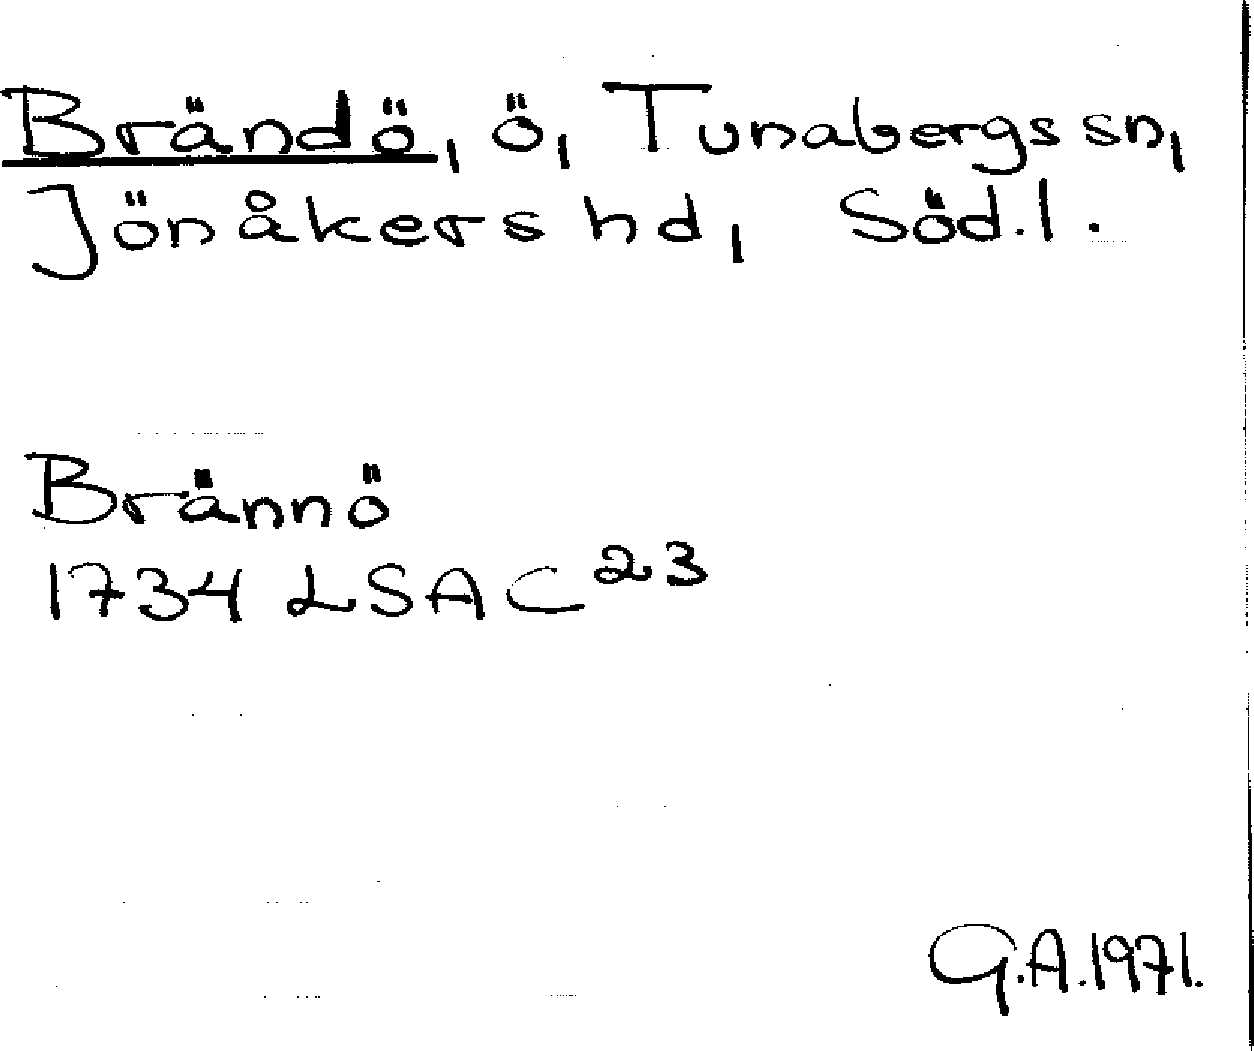 Brändö, ö, Tunabergs sn,
Jönåkers hd, Söd.l.
Brännö
1734 LSA C23
G.A.1971.